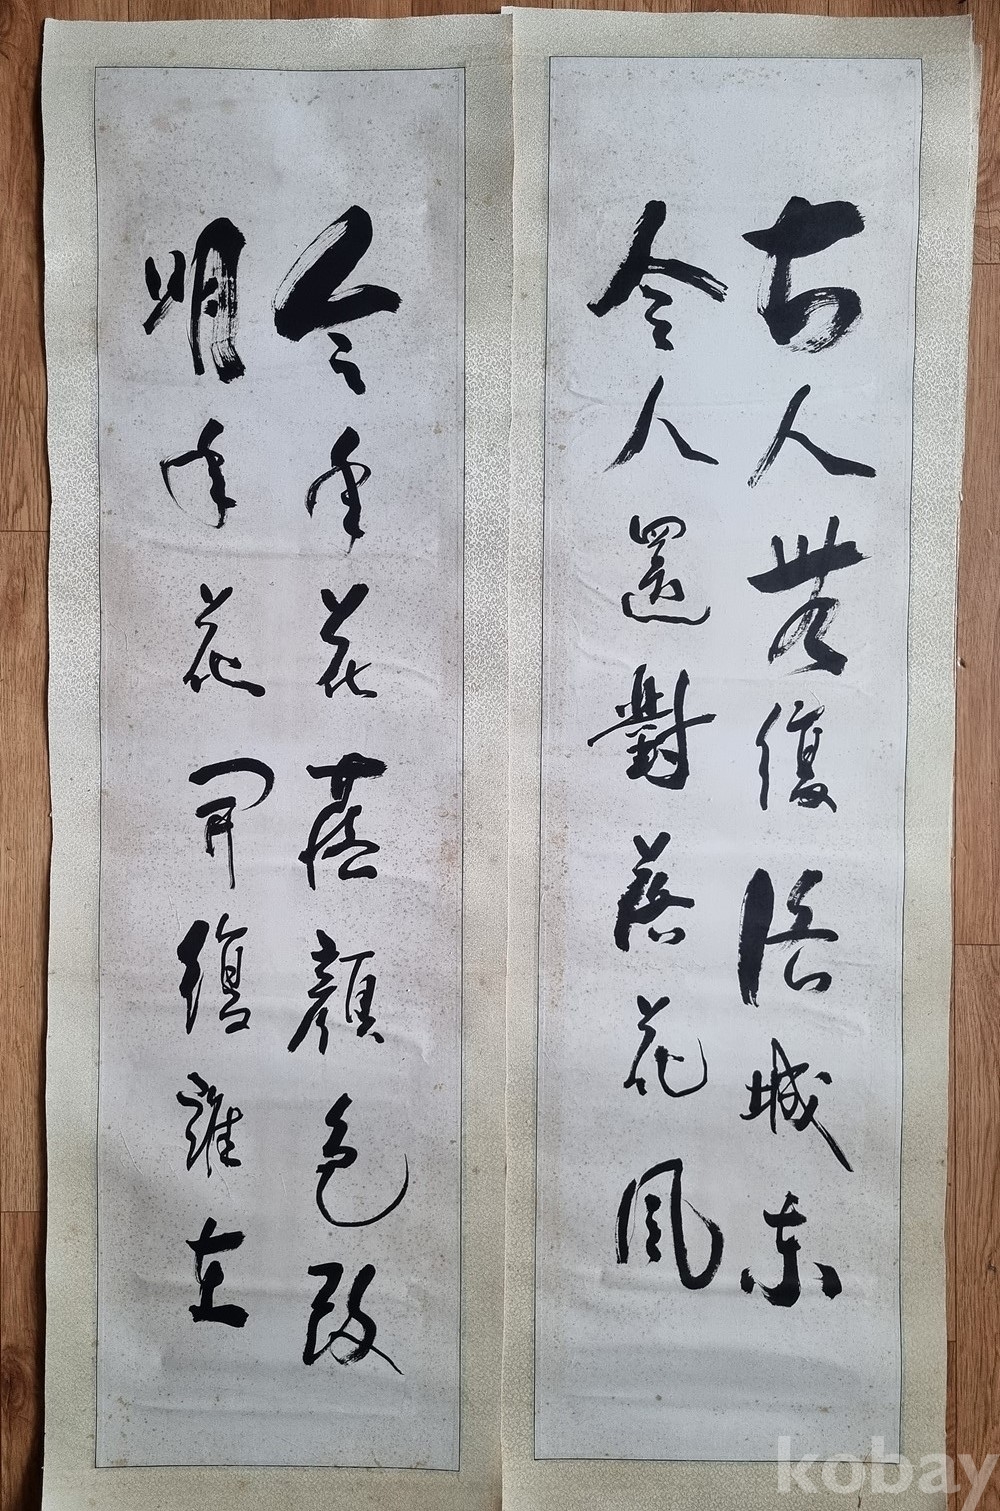 古人無復洛城東
今人還對落花風
今年花落顔色改
明年花開復誰在
kobay